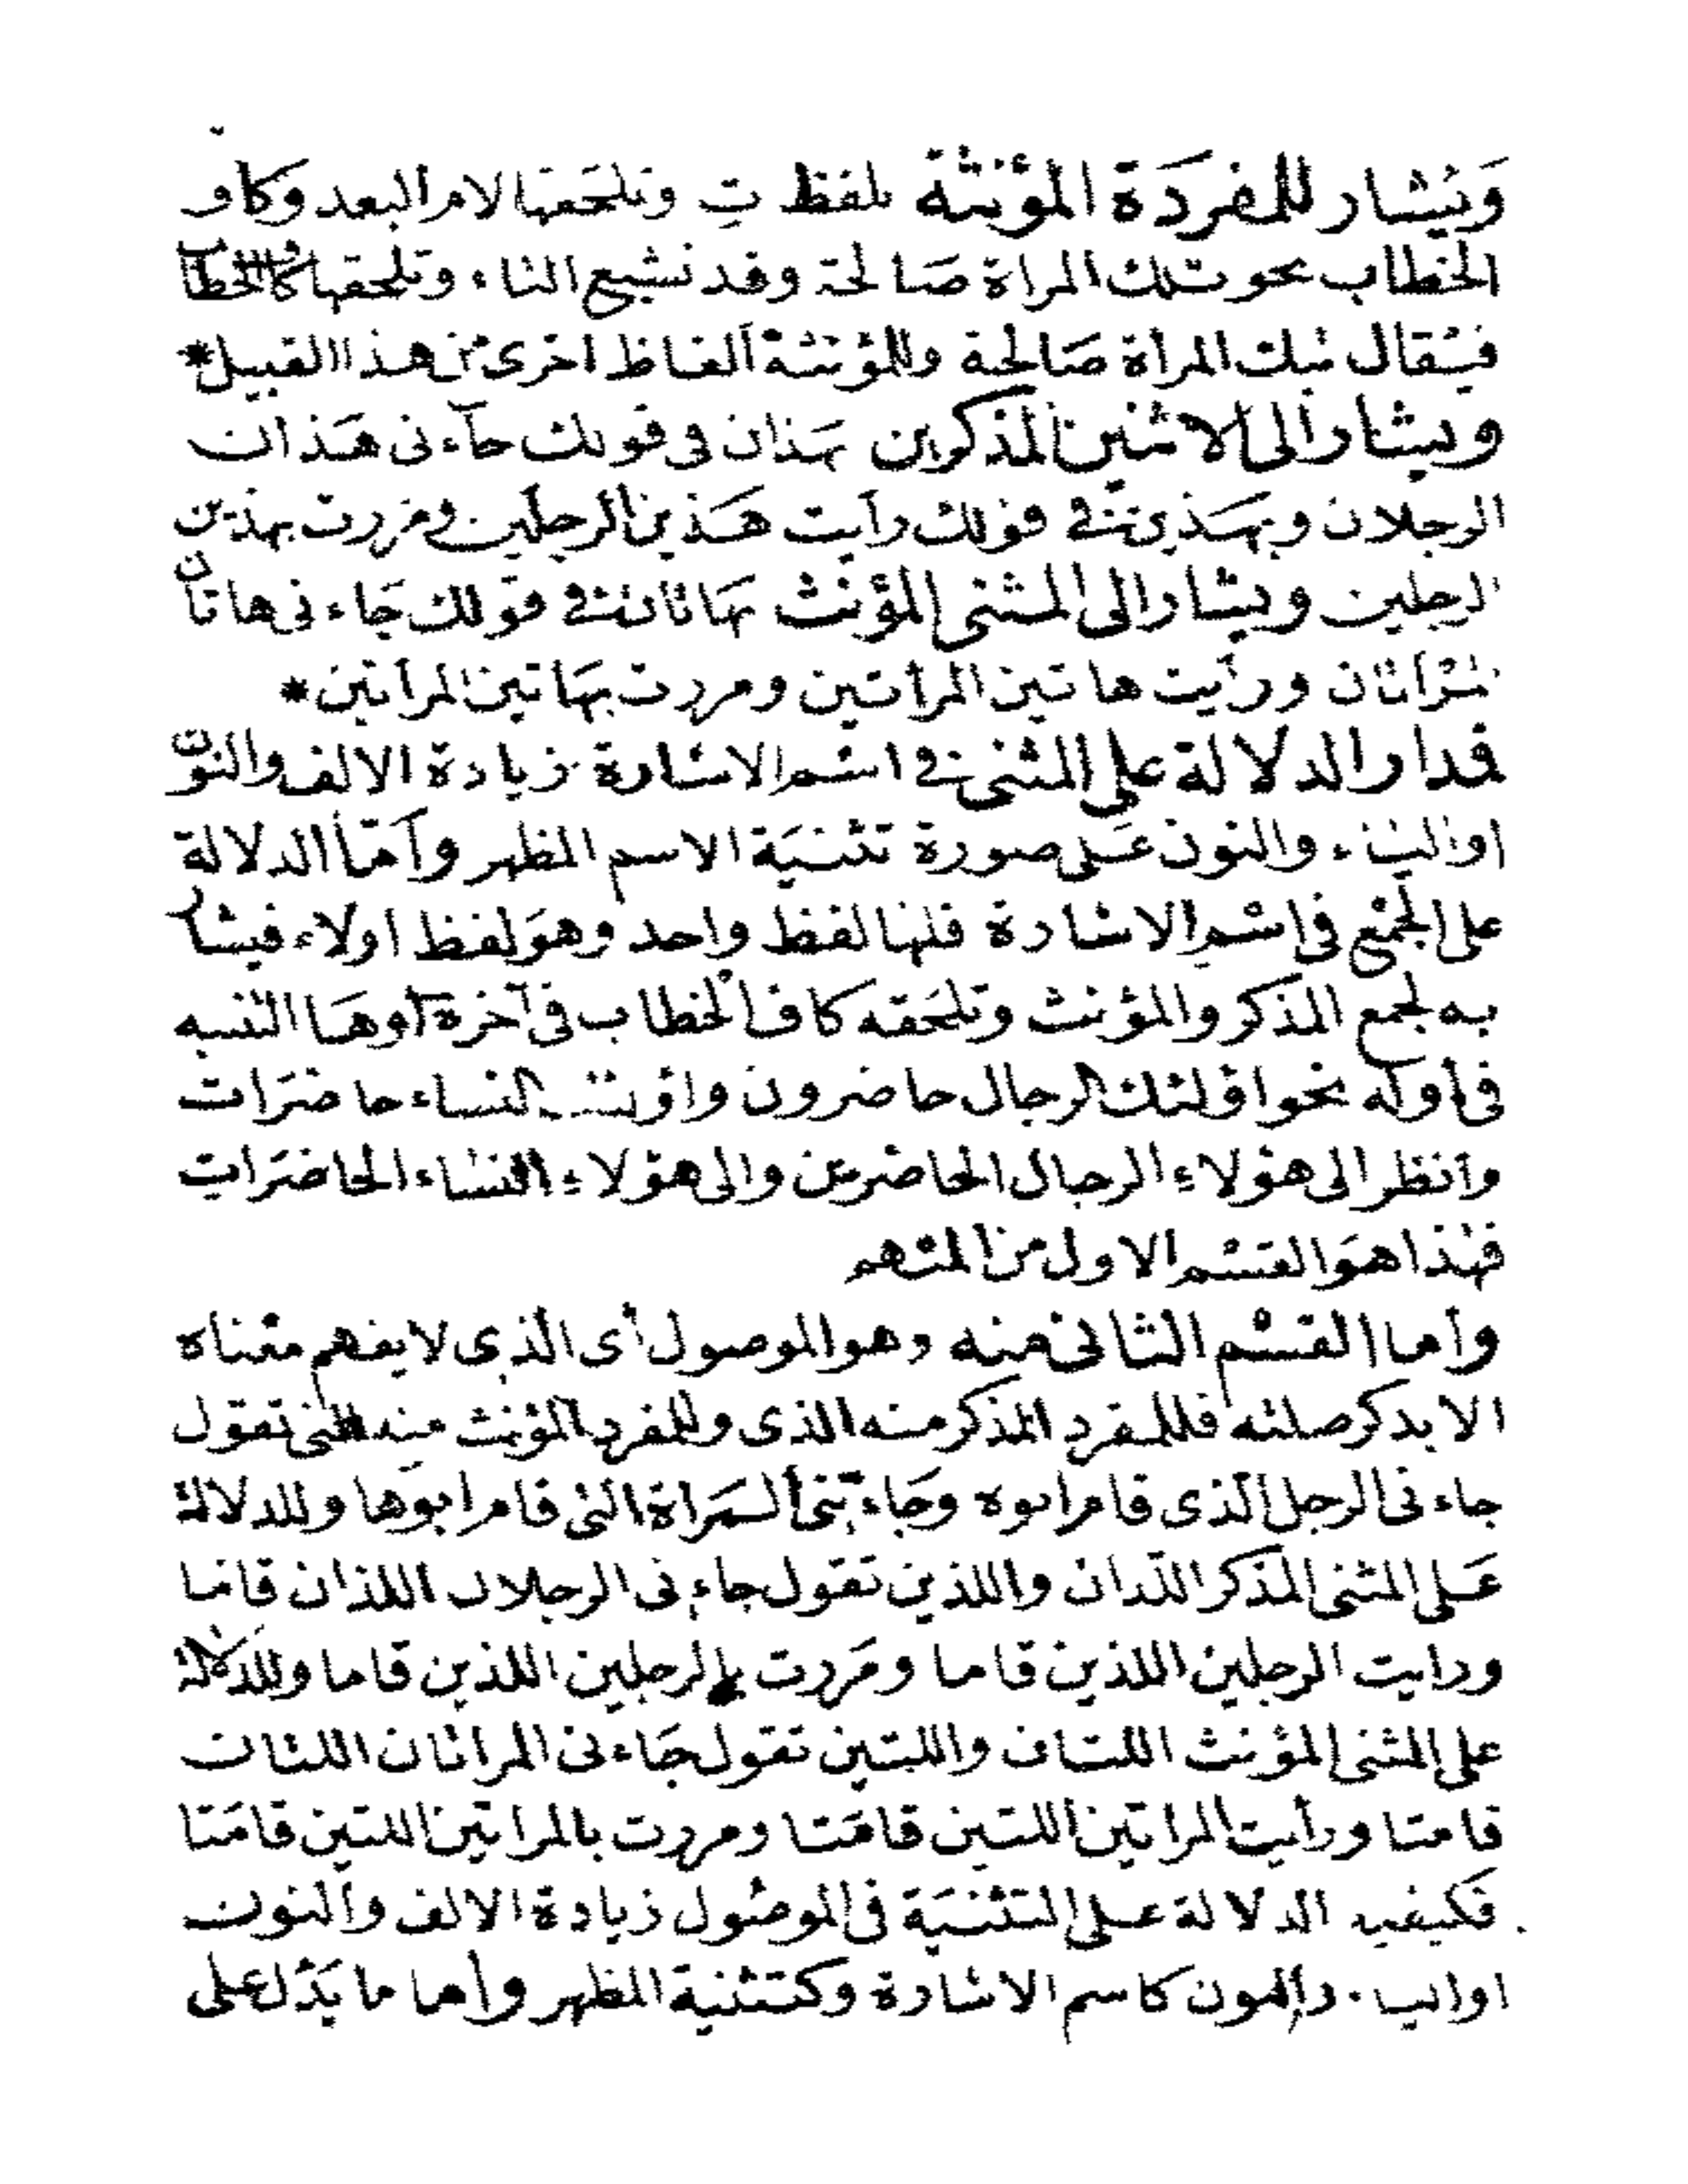 ويشار للمفردة المؤنثة بلفظ تِ وتلحقها لام البعد وكاف
الخطاب نحو تلك المراة صالحة وقد تشبع التاء وتلحقها كاف الخطاب
فيقال تيك المرأة صالحة وللمؤنثة ألفاظ اخرى من هذا القبيل *
ويشار الى الاثنين المذكرين بهذان في قولك جآءنى هذان
الرجلان وبهذين في قولك رأيت هذين الرجلين ومررت بهذين
الرجلين ويشار الى المثنى المؤنث بهاتان في قولك جاءنى هاتان
المرأتان ورأيت هاتين المرأتين ومررت بهاتين المرأتين *
فمدار الدلالة على المثنى في اسم الاشارة زيادة الالف والنون
او الياء والنون على صورة تثنية الاسم المظهر وأمّا الدلالة
على الجمع في اسم الاشارة فلها لفظ واحد وهو لفظ اولاء فيشار
به لجمع المذكر والمؤنث وتلحقه كاف الخطاب في آخره أو ها التنبيه
في أوله نحو اولئك الرجال حاضرون واولئك النساء حاضرات
وانظر الى هؤلاء الرجال الحاضرين والى هؤلاء النساء الحاضرات
فهذا هو القسم الاول من المبهم
وأما القسم الثانى منه وهو الموصول أى الذى لا يفهم معناه
الا بذكر صلته فللمفرد المذكر منه الذى وللمفرد المؤنث منه التى تقول
جاءنى الرجل الذى قام ابوه وجاءتنى المراة التى قام ابوها وللدلالة
على المثنى المذكر اللذان واللذين تقول جاءنى الرجلان اللذان قاما
ورايت الرجلين اللذين قاما ومررت بالرجلين اللذين قاما وللدلالة
على المثنى المؤنث اللتان واللتين تقول جاءنى المراتان اللتان
قامتا ورأيت المراتين اللتين قامتا ومررت بالمراتين اللتين قامتا
فكيفية الدلالة على التثنية في الموصول زيادة الالف والنون
او الياء والنون كاسم الاشارة وكتثنية المظهر وأما ما يدل على